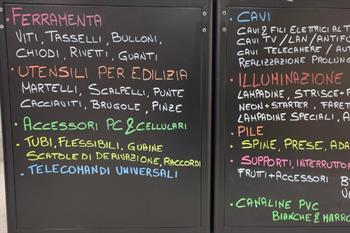 • FERRAMENTA
VITI, TASSELLI, BULLONI,
CHIODI, RIVETI, GUANTI
• UTENSILI PER EDILIZIA
MARTELLI, SCALPELLI, PUNTE
CACCIAVITI, BRUGOLE, PINZE
• ACCESSORI PC & CELLULARI
• TUBI, FLESSIBILI, GUAINE
SCATOLE DI DERIVAZIONE, RACCORDI
• TELECOMANDI UNIVERSALI
• CAVI
CAVI E FILI ELETTRICI AL
CAVI TV / LAN / ANTIF
CAVI TELECAMERE / AUT
REALIZZAZIONE PROLUN
• ILLUMINAZIONE
LAMPADINE, STRISCE +
NEON + STARTER. FARET
LAMPADINE SPECIALI, A
• PILE
• SPINE, PRESE, ADA
• SUPPORTI, INTERRUTTO
FRUTTI + ACCESSORI
• CANALINE PVC
BIANCHE & MARRO